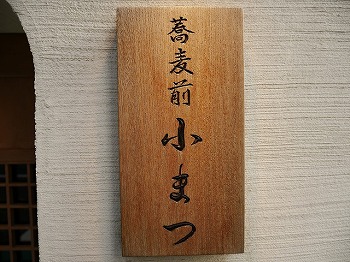 蕎麦前小まつ